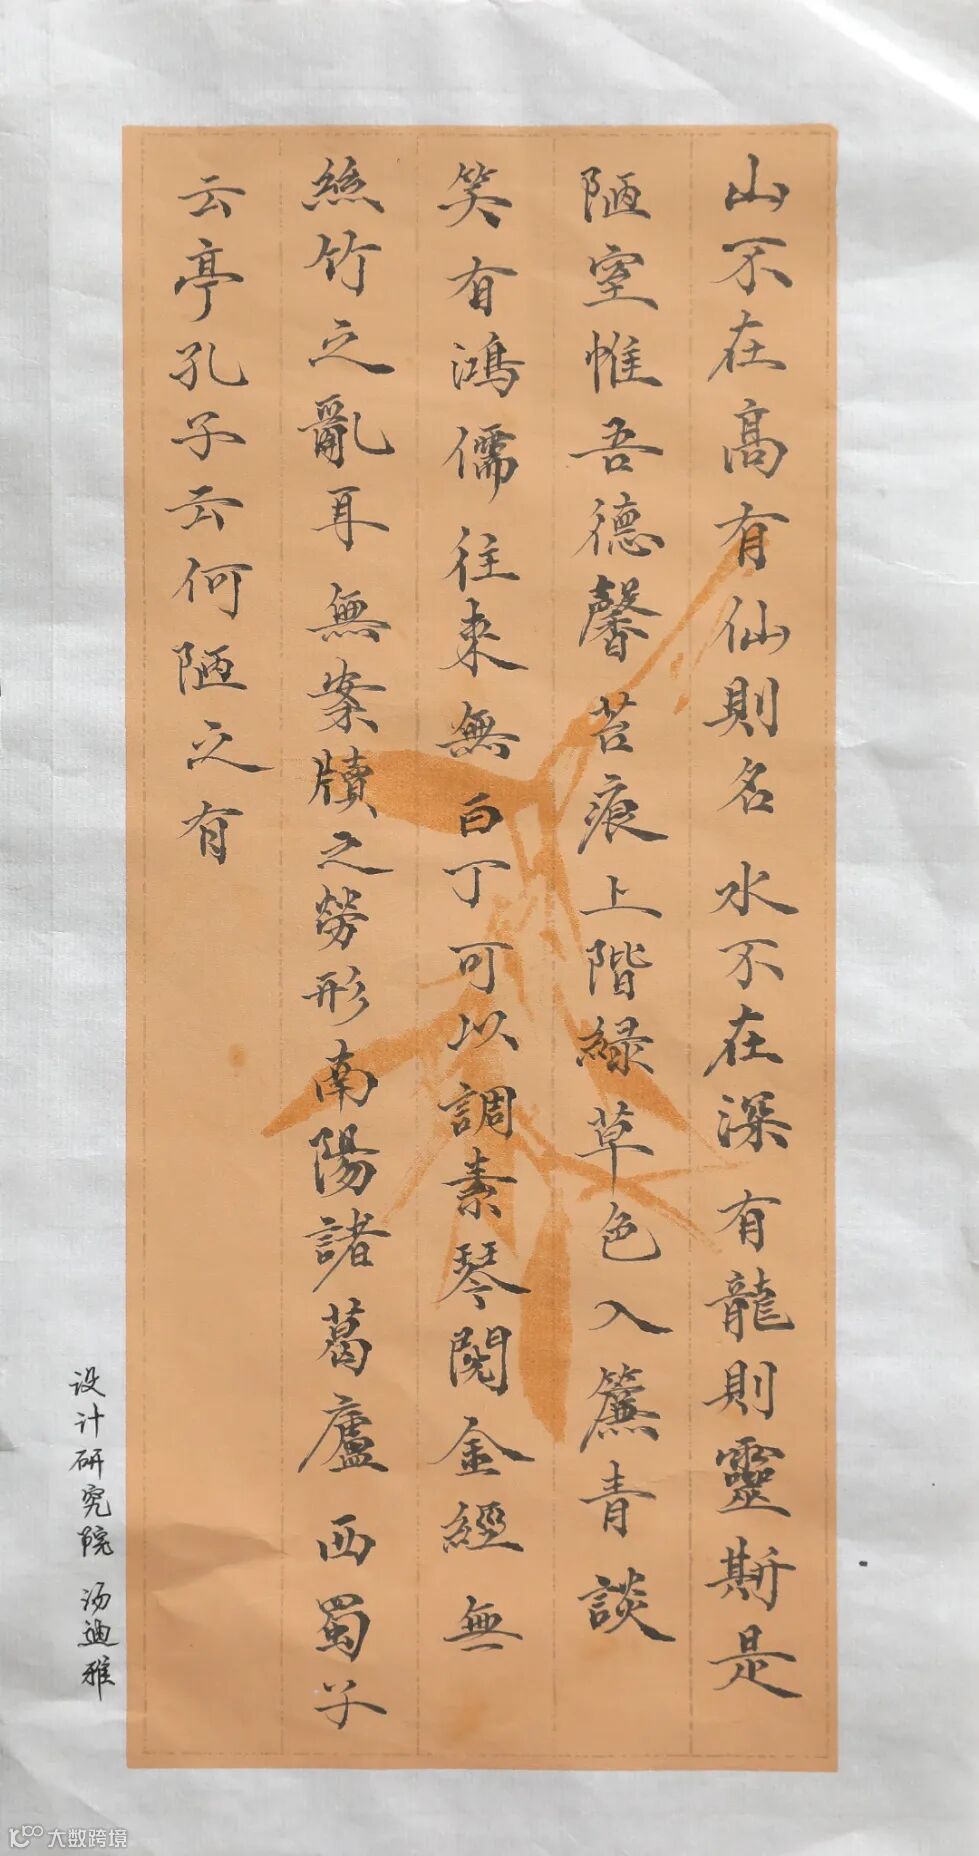 山不在高有仙則名水不在深有龍則靈斯是
陋室惟吾德馨苔痕上階緑草色入簾青談
笑有鴻儒往来無白丁可以調素琴閱金經無
絲竹之亂耳無案牘之勞形南陽諸葛廬西蜀子
云亭孔子云何陋之有
设计研究院 汤迪雅
大数跨境